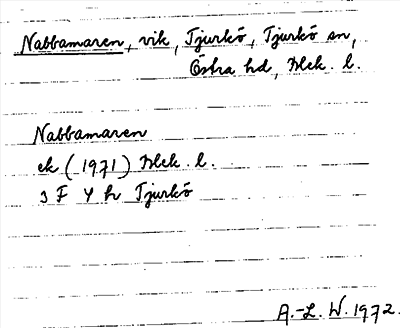 Nabbamaren, vik, Tjurkö, Tjurkö sn,
Östra hd, Blek. l.
Nabbamaren
ek (1971) Blek. l.
3 F 4 h Tjurkö
A.-L. W. 1972.